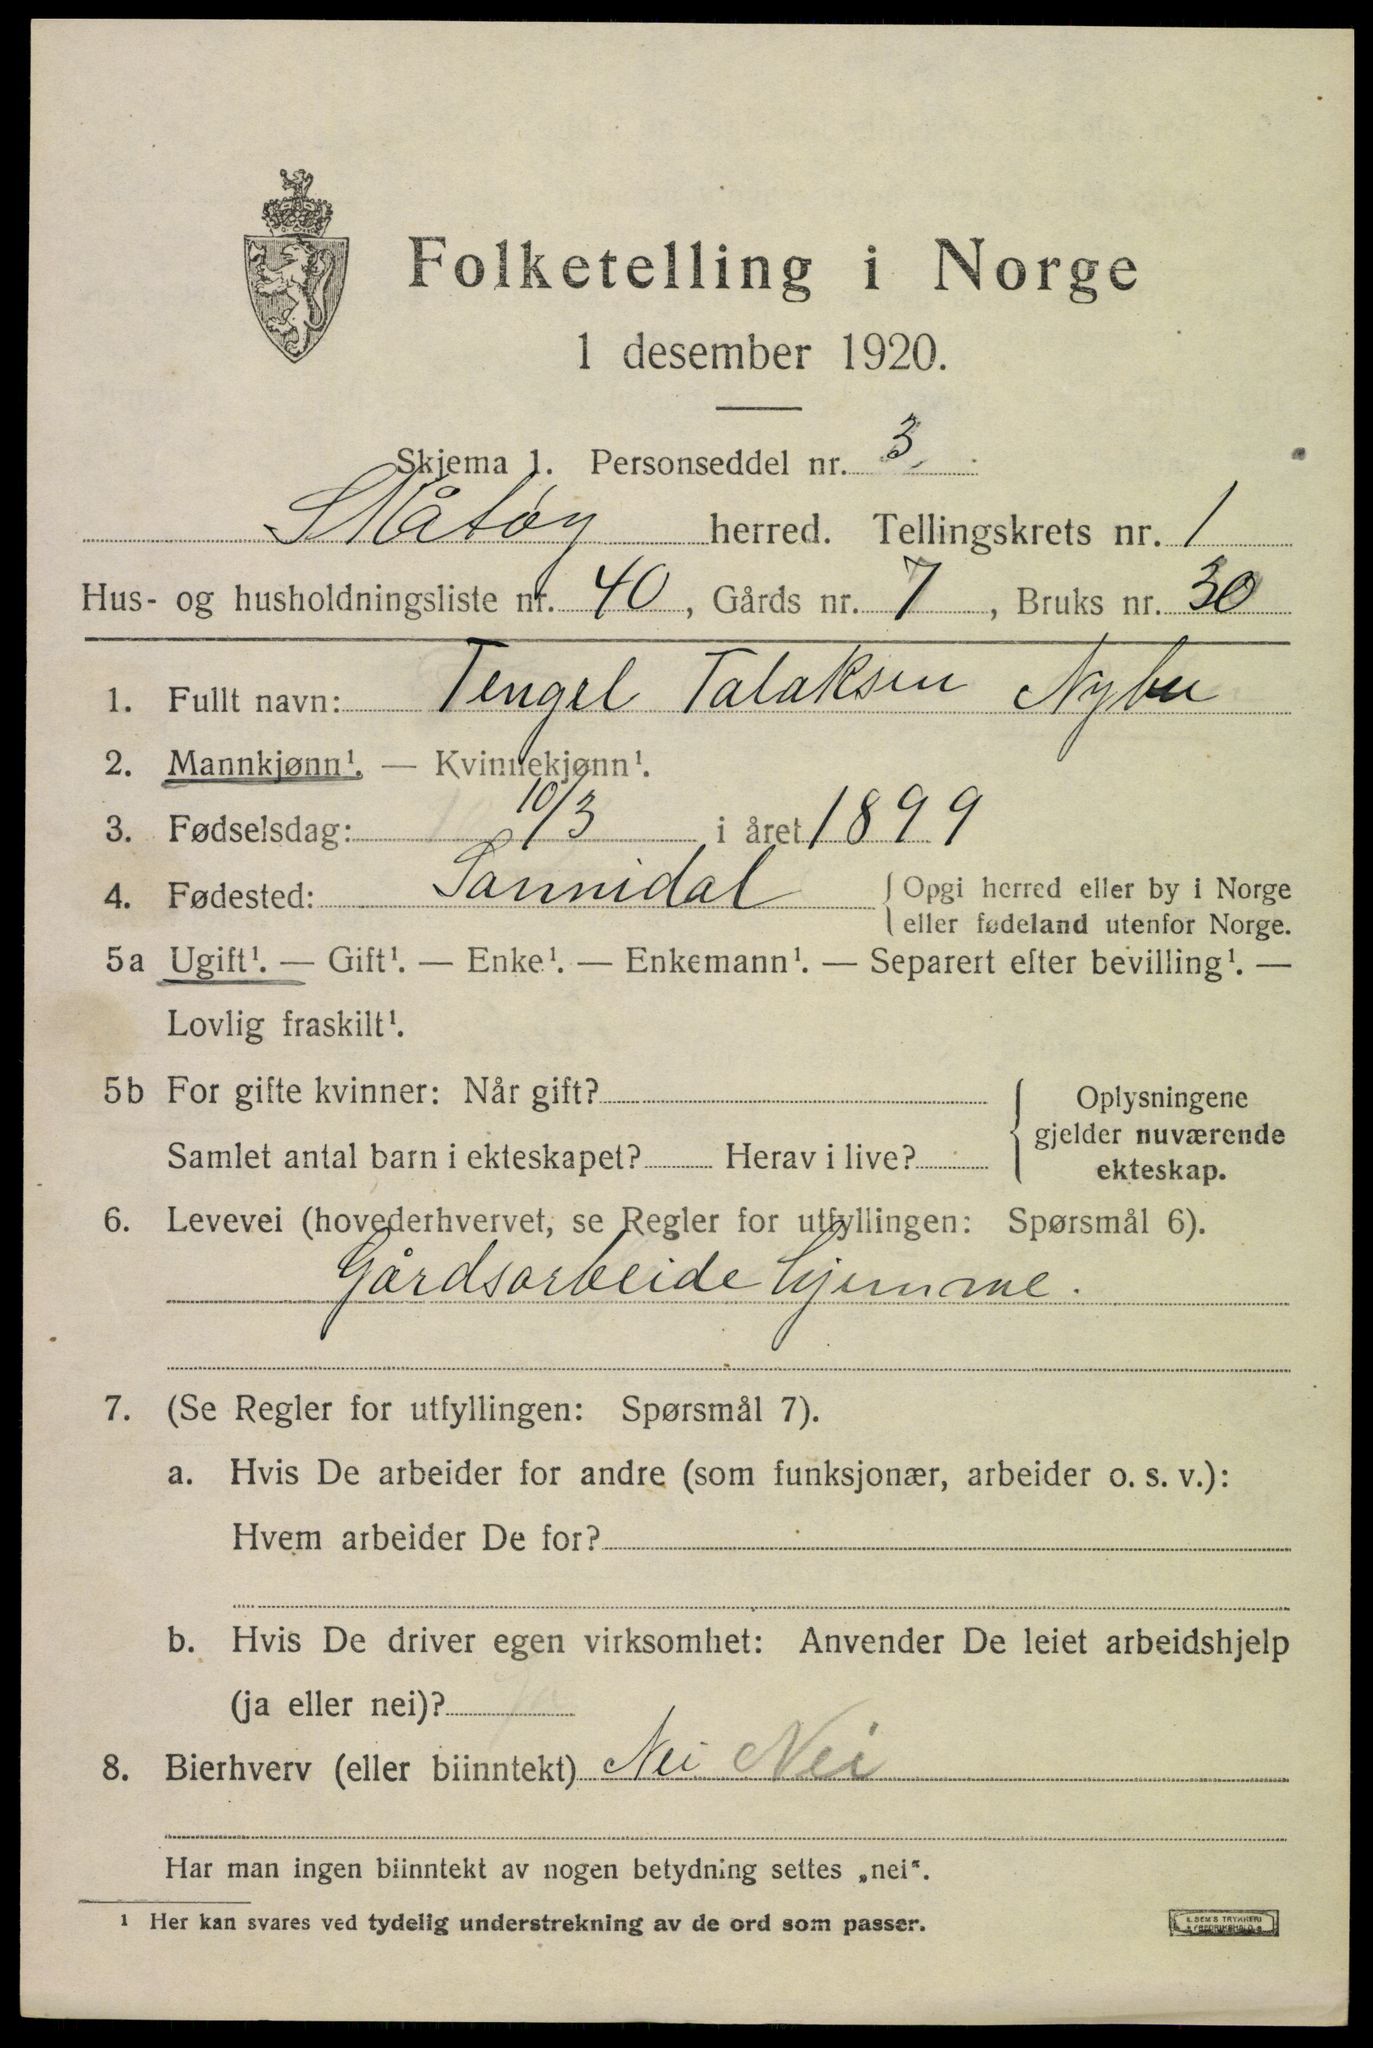 Folketelling i Norge
1 desember 1920.
Skjema 1. Personseddel nr. 3.
Skåtøy herred. Tellingskrets nr. 1
Hus- og husholdningsliste nr. 40, Gårds nr. 7, Bruks nr. 30
1. Fullt navn: Tengel Talaksen Nybu
2. Mannkjønn¹. — Kvinnekjønn¹.
3. Fødselsdag: 10/3 i året 1899
4. Fødested: Sannidal { Opgi herred eller by i Norge
eller fødeland utenfor Norge.
5a Ugift¹. — Gift¹. — Enke¹. — Enkemann¹. — Separert efter bevilling¹. —
Lovlig fraskilt¹.
5b For gifte kvinner: Når gift?
Samlet antal barn i ekteskapet? Herav i live?
{ Oplysningene
gjelder nuværende
ekteskap.
6. Levevei (hovederhvervet, se Regler for utfyllingen: Spørsmål 6).
Gårdsarbeide hjemme.
7. (Se Regler for utfyllingen: Spørsmål 7).
a. Hvis De arbeider for andre (som funksjonær, arbeider o. s. v.):
Hvem arbeider De for?
b. Hvis De driver egen virksomhet: Anvender De leiet arbeidshjelp
(ja eller nei)? Ja
8. Bierhverv (eller biinntekt) Nei Nei
Har man ingen biinntekt av nogen betydning settes „nei“.
¹ Her kan svares ved tydelig understrekning av de ord som passer.
E. SEM'S TRYKKERI
FREDRIKSHALD